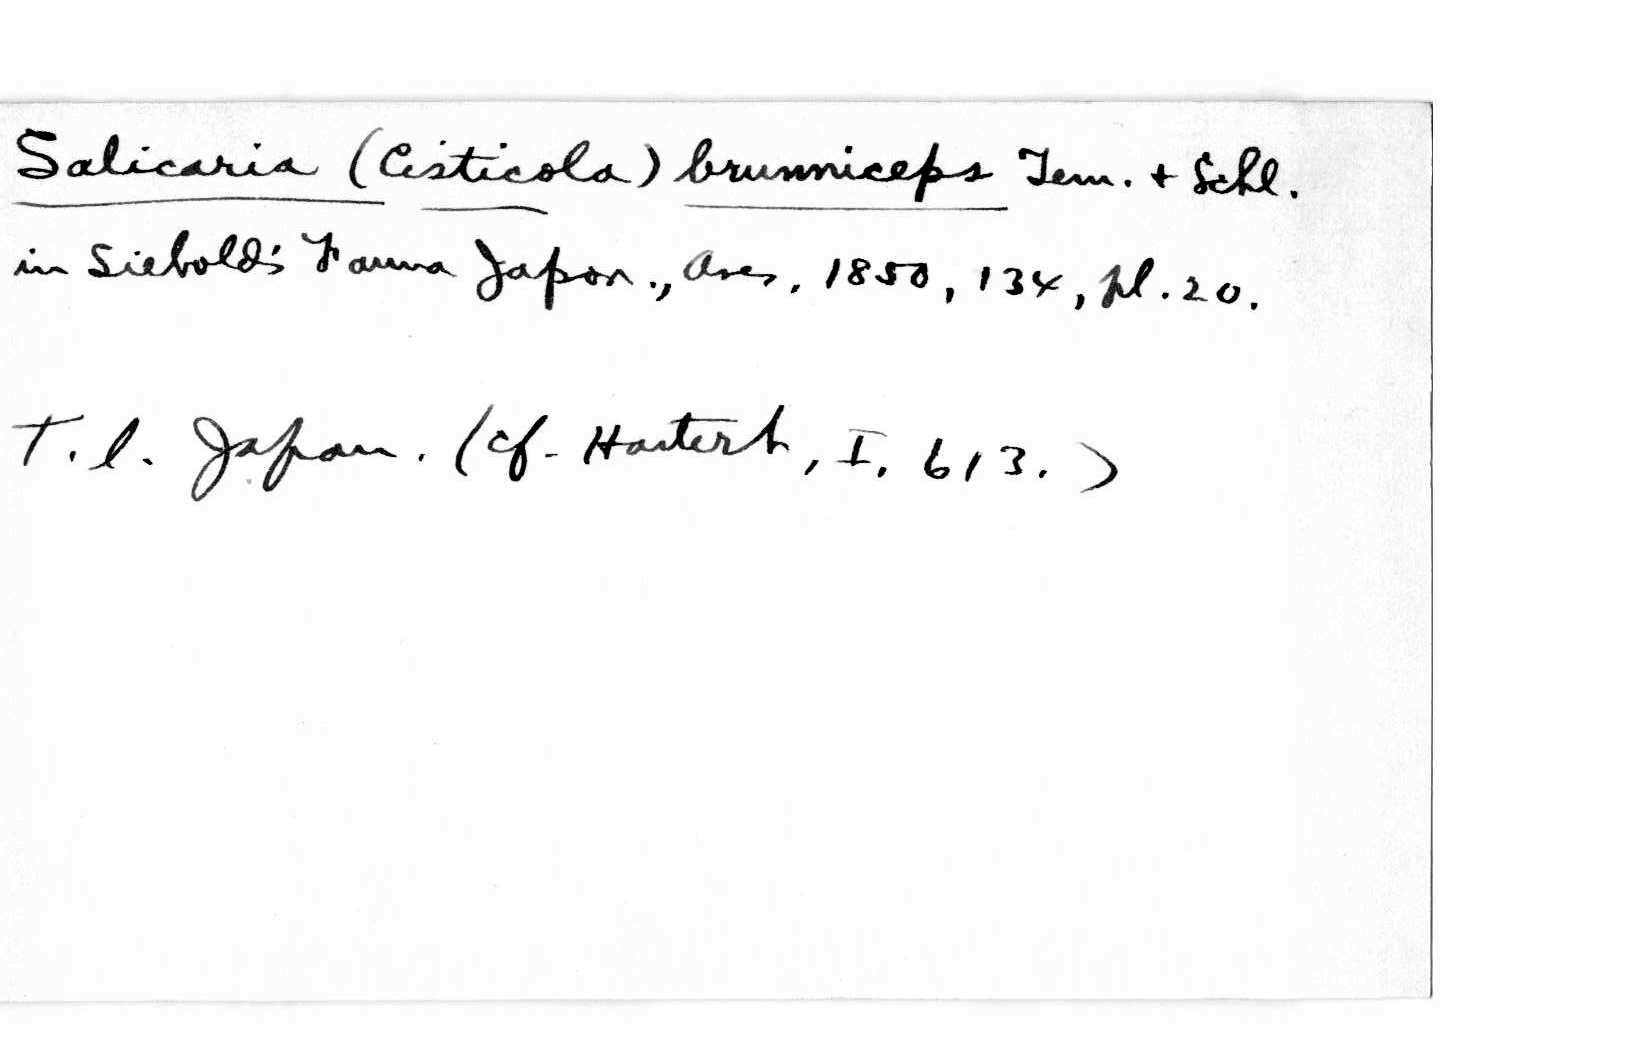 Salicaria (Cisticola) brunniceps Tem. + Schl.
in Siebold's Fauna Japon., Aves, 1850, 134, pl. 20.
T. l. Japan. (cf. Hartert, I, 613.)